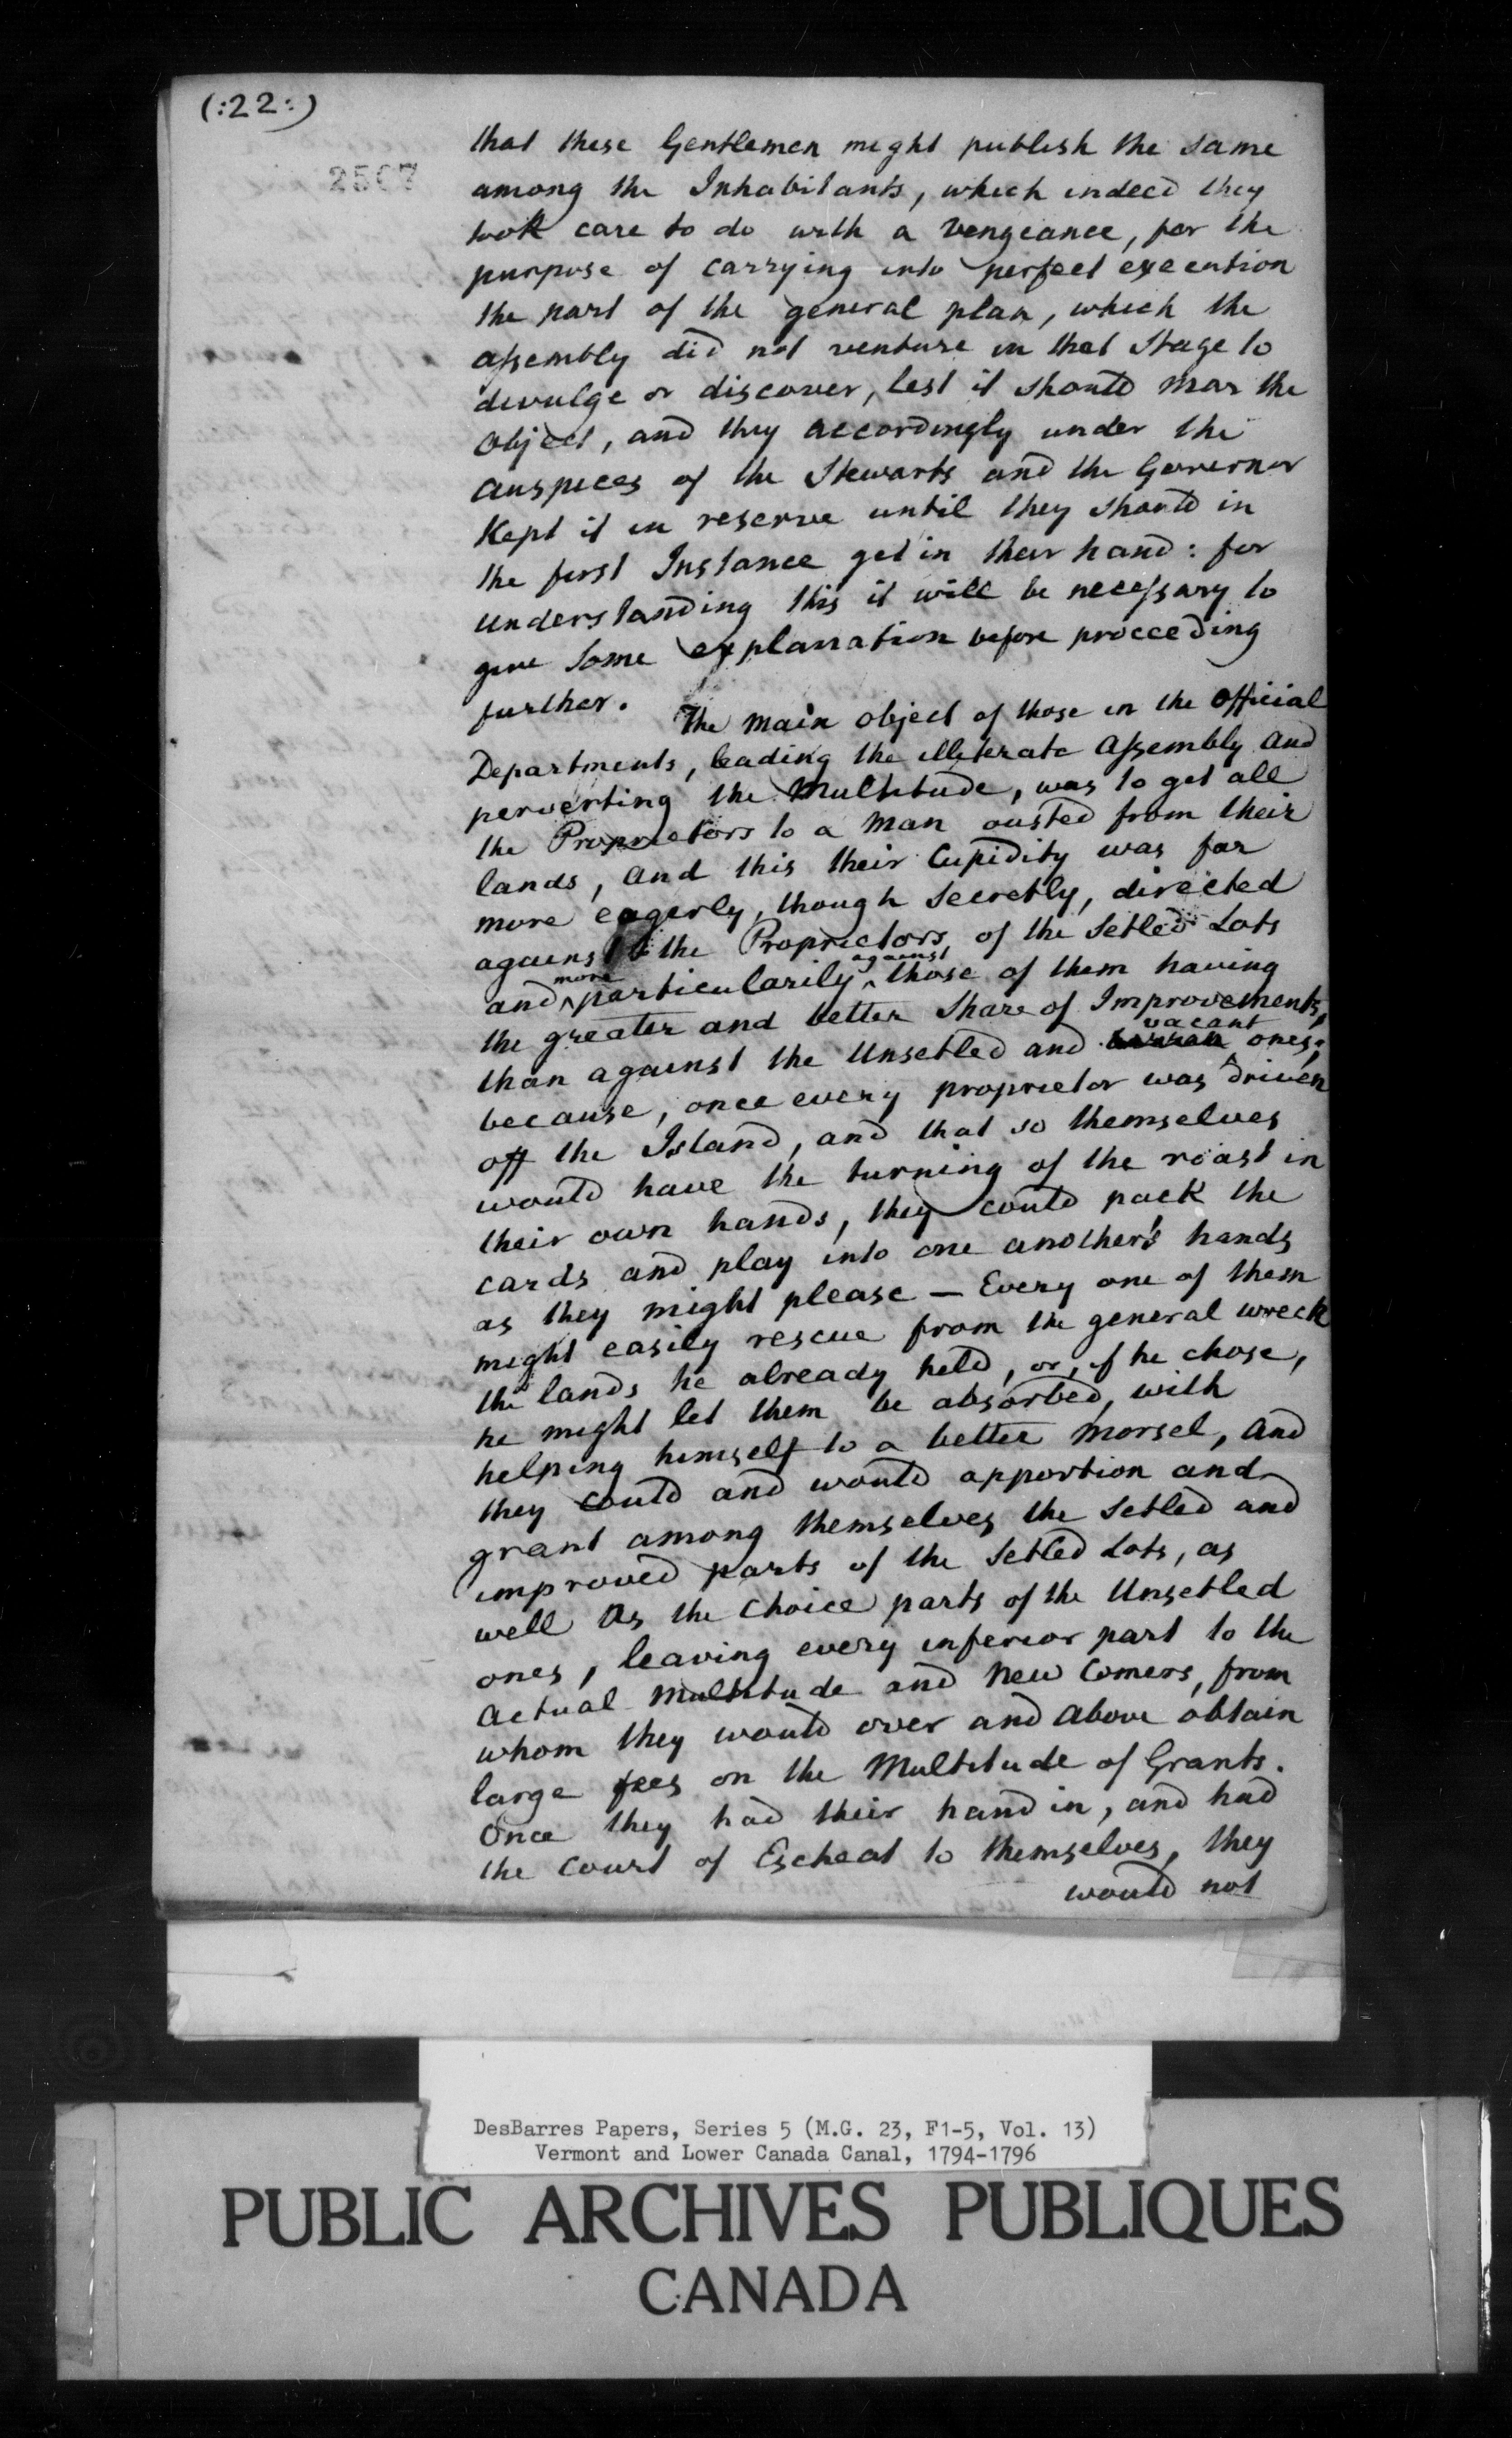 (:22:)
2567
that these Gentlemen might publish the same
among the Inhabitants, which indeed they
took care to do with a vengeance, for the
purpose of carrying into perfect execution
the part of the general plan, which the
assembly did not venture in that Stage to
divulge or discover, lest it should mar the
object, and they accordingly under the
auspices of the Stewarts and the Governor
Kept it in reserve until they should in
the first Instance get in their hand: for
understanding this it will be necessary to
give some explanation before proceeding
further. The main object of those in the official
Departments, leading the illiterate Assembly and
perverting the Multitude, was to get all
the Proprietors to a man ousted from their
lands, and this their Cupidity was far
more eagerly, though secretly, directed
against the Proprietors, of the Setled Lots
and more particularily against those of them having
the greater and better share of Improvements,
than against the Unsetled and vacant ones;
because, once every proprietor was driven
off the Island, and that so themselves
would have the turning of the roast in
their own hands, they could pack the
cards and play into one another's hands
as they might please — Every one of them
might easily rescue from the general wreck
the lands he already held, or, if he chose,
he might let them be absorbed, with
helping himself to a better morsel, and
they could and would apportion and
grant among themselves the setled and
improved parts of the Setled Lots, as
well as the choice parts of the Unsetled
ones, leaving every inferior part to the
actual Multitude and New Comers, from
whom they would over and above obtain
large fees on the Multitude of Grants.
Once they had their hand in, and had
the Court of Escheat to themselves, they
would not
DesBarres Papers, Series 5 (M.G. 23, F1-5, Vol. 13)
Vermont and Lower Canada Canal, 1794-1796
PUBLIC ARCHIVES PUBLIQUES
CANADA